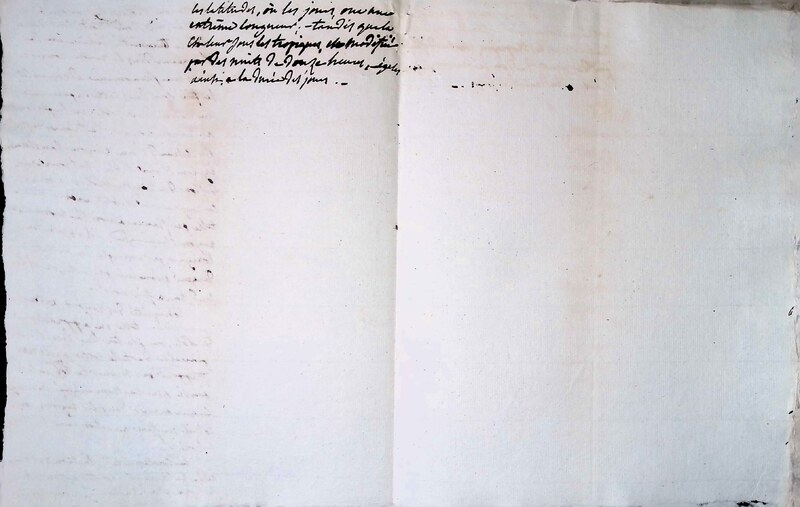 les latitudes, où les jours ont une
extrême longueur, – tandis que la
chaleur sous les tropiques, est modifiée
par des nuits de douze heures, égales
ainsi, a la durée des jours. –